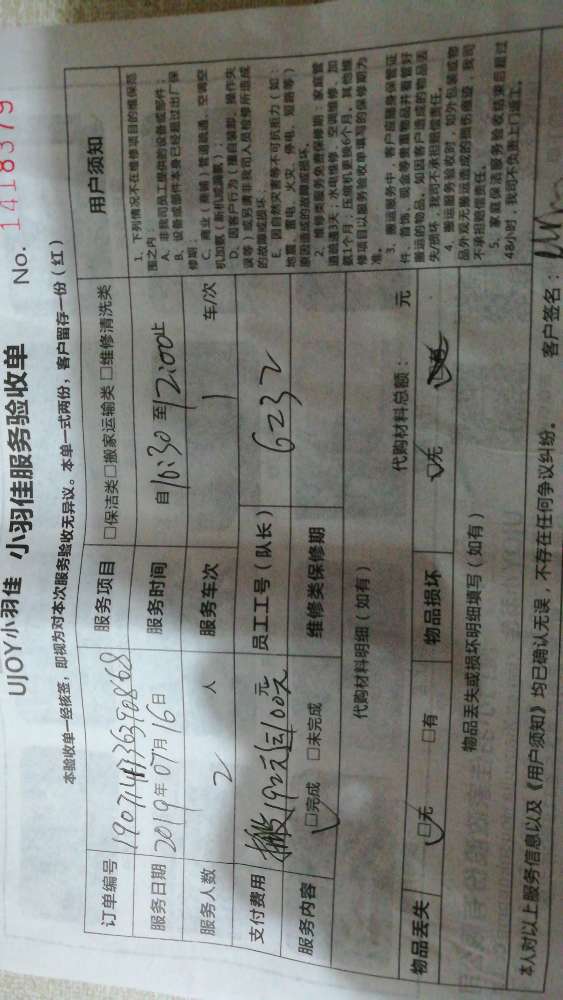 UJOY小羽佳 小羽佳服务验收单
No. 1418379
本验收单一经核签，即视为对本次服务验收无异议。本单一式两份，客户留存一份（红）
订单编号
服务项目 □保洁类□搬家运输类 □维修清洗类
服务日期 2019年07月16日
服务时间 自10:30至12:00止
服务人数 2 人
服务车次 1 车/次
支付费用 192元 100元 元
员工工号（队长） 6232
服务内容 □完成 □未完成
维修类保修期
代购材料明细（如有） 代购材料总额： 元
物品丢失 □无 □有
物品损坏 □无
物品丢失或损坏明细填写（如有）
本人对以上服务信息以及《用户须知》均已确认无误，不存在任何争议纠纷。 客户签名：
用户须知
1、下列情况不在维修项目的维保范
围之内：
A、非我司员工提供的设备或部件；
B、设备或部件本身已经超过出厂保
修期；
C、商业（商铺）管道疏通、空调空
机加氨（新机或漏氨）；
D、因客户行为（擅自装卸、操作失
误等）或另请非我司人员检修所造成
的故障或损坏；
E、因自然灾害等不可抗拒力（如：
地震、雷电、火灾、停电、短路等）
原因造成的故障或损坏。
2、维修类服务免费保修期：家庭管
道疏通3天；水电维修、空调维修、加
氨1个月；压缩机更换6个月，其他维
修项目以服务验收单填写的保修期为
准。
3、搬运服务中，客户应随身保管证
件、首饰、现金等贵重物品并看管好
搬运的物品，如因客户造成的物品丢
失/损坏，我司不承担赔偿责任。
4、搬运服务验收时，如外包装或物
品外观无搬运造成的损伤痕迹，我司
不承担赔偿责任。
5、家庭保洁服务验收结束后超过
48小时，我司不负责上门返工。